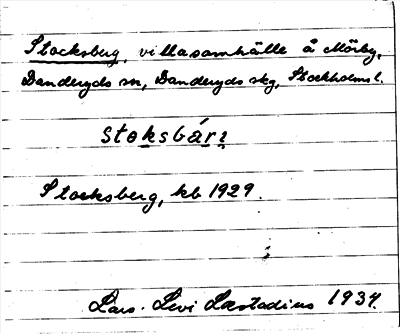 Stocksberg, villasamhälle å Mörby,
Danderyds sn, Danderyds skg, Stockholms l.
stoksbárj
Stocksberg, kb 1929.
Lars-Levi Læstadius 1934.